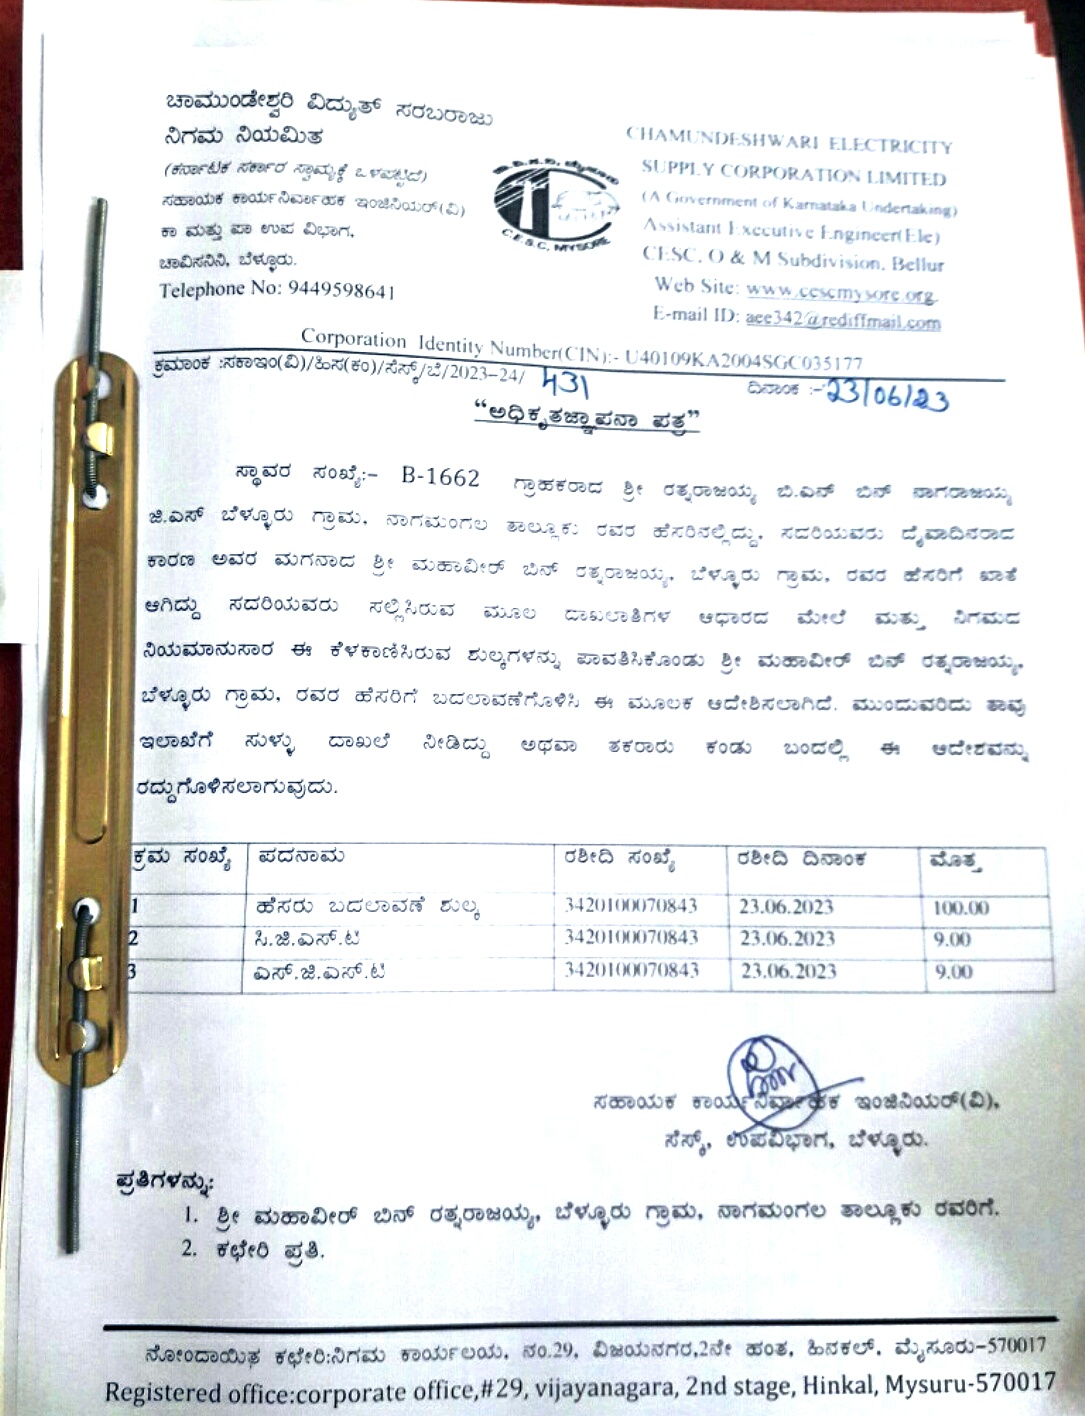 ಚಾಮುಂಡೇಶ್ವರಿ ವಿದ್ಯುತ್ ಸರಬರಾಜು
ನಿಗಮ ನಿಯಮಿತ
(ಕರ್ನಾಟಕ ಸರ್ಕಾರ ಸ್ವಾಮ್ಯಕ್ಕೆ ಒಳಪಟ್ಟಿದೆ)
ಸಹಾಯಕ ಕಾರ್ಯನಿರ್ವಾಹಕ ಇಂಜಿನಿಯರ್(ವಿ)
ಕಾ ಮತ್ತು ಪಾ ಉಪ ವಿಭಾಗ,
ಚಾವಿಸನಿನಿ, ಬೆಳ್ಳೂರು.
Telephone No: 9449598641
C.E.S.C. MYSORE
CHAMUNDESHWARI ELECTRICITY
SUPPLY CORPORATION LIMITED
(A Government of Karnataka Undertaking)
Assistant Executive Engineer(Ele)
CESC, O & M Subdivision, Bellur
Web Site: www.cescmysore.org.
E-mail ID: aee342@rediffmail.com
Corporation Identity Number(CIN):- U40109KA2004SGC035177
ಕ್ರಮಾಂಕ :ಸಕಾಇಂ(ವಿ)/ಹಿಸ(ಕಂ)/ಸೆಸ್ಕ್/ಬೆ/2023-24/ 431 ದಿನಾಂಕ :-23/06/23
“ಅಧಿಕೃತಜ್ಞಾಪನಾ ಪತ್ರ”
ಸ್ಥಾವರ ಸಂಖ್ಯೆ:- B-1662 ಗ್ರಾಹಕರಾದ ಶ್ರೀ ರತ್ನರಾಜಯ್ಯ ಬಿ.ಎನ್ ಬಿನ್ ನಾಗರಾಜಯ್ಯ
ಜಿ.ಎಸ್ ಬೆಳ್ಳೂರು ಗ್ರಾಮ, ನಾಗಮಂಗಲ ತಾಲ್ಲೂಕು ರವರ ಹೆಸರಿನಲ್ಲಿದ್ದು, ಸದರಿಯವರು ದೈವಾದಿನರಾದ
ಕಾರಣ ಅವರ ಮಗನಾದ ಶ್ರೀ ಮಹಾವೀರ್ ಬಿನ್ ರತ್ನರಾಜಯ್ಯ, ಬೆಳ್ಳೂರು ಗ್ರಾಮ, ರವರ ಹೆಸರಿಗೆ ಖಾತೆ
ಆಗಿದ್ದು ಸದರಿಯವರು ಸಲ್ಲಿಸಿರುವ ಮೂಲ ದಾಖಲಾತಿಗಳ ಆಧಾರದ ಮೇಲೆ ಮತ್ತು ನಿಗಮದ
ನಿಯಮಾನುಸಾರ ಈ ಕೆಳಕಾಣಿಸಿರುವ ಶುಲ್ಕಗಳನ್ನು ಪಾವತಿಸಿಕೊಂಡು ಶ್ರೀ ಮಹಾವೀರ್ ಬಿನ್ ರತ್ನರಾಜಯ್ಯ,
ಬೆಳ್ಳೂರು ಗ್ರಾಮ, ರವರ ಹೆಸರಿಗೆ ಬದಲಾವಣೆಗೊಳಿಸಿ ಈ ಮೂಲಕ ಆದೇಶಿಸಲಾಗಿದೆ. ಮುಂದುವರಿದು ತಾವು
ಇಲಾಖೆಗೆ ಸುಳ್ಳು ದಾಖಲೆ ನೀಡಿದ್ದು ಅಥವಾ ತಕರಾರು ಕಂಡು ಬಂದಲ್ಲಿ ಈ ಆದೇಶವನ್ನು
ರದ್ದುಗೊಳಿಸಲಾಗುವುದು.
ಕ್ರಮ ಸಂಖ್ಯೆ ಪದನಾಮ ರಶೀದಿ ಸಂಖ್ಯೆ ರಶೀದಿ ದಿನಾಂಕ ಮೊತ್ತ
1 ಹೆಸರು ಬದಲಾವಣೆ ಶುಲ್ಕ 3420100070843 23.06.2023 100.00
2 ಸಿ.ಜಿ.ಎಸ್.ಟಿ 3420100070843 23.06.2023 9.00
3 ಎಸ್.ಜಿ.ಎಸ್.ಟಿ 3420100070843 23.06.2023 9.00
ಸಹಾಯಕ ಕಾರ್ಯನಿರ್ವಾಹಕ ಇಂಜಿನಿಯರ್(ವಿ),
ಸೆಸ್ಕ್, ಉಪವಿಭಾಗ, ಬೆಳ್ಳೂರು.
ಪ್ರತಿಗಳನ್ನು:
1. ಶ್ರೀ ಮಹಾವೀರ್ ಬಿನ್ ರತ್ನರಾಜಯ್ಯ, ಬೆಳ್ಳೂರು ಗ್ರಾಮ, ನಾಗಮಂಗಲ ತಾಲ್ಲೂಕು ರವರಿಗೆ.
2. ಕಛೇರಿ ಪ್ರತಿ.
ನೋಂದಾಯಿತ ಕಛೇರಿ:ನಿಗಮ ಕಾರ್ಯಲಯ, ನಂ.29, ವಿಜಯನಗರ,2ನೇ ಹಂತ, ಹಿನಕಲ್, ಮೈಸೂರು-570017
Registered office:corporate office,#29, vijayanagara, 2nd stage, Hinkal, Mysuru-570017